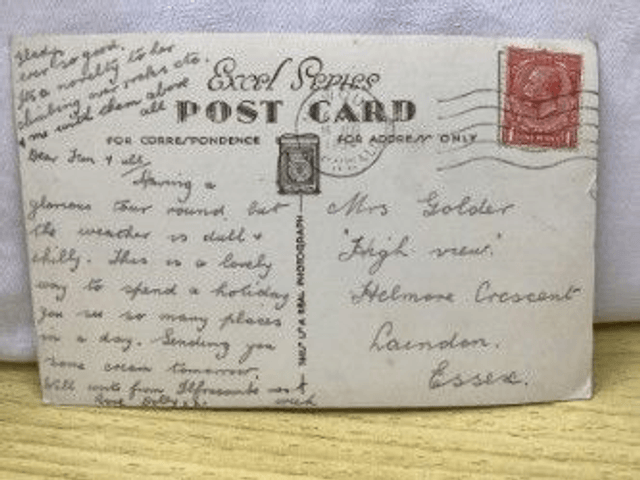 Gladys
ever so good.
Its a novelty to her
climbing over rocks etc.
& me
them above
all
Excel Series
POST CARD
FOR CORRESPONDENCE
FOR ADDRESS ONLY
Dear Fran & all,
Having a
glorious tour round, but
the weather is dull &
chilly. This is a lovely
way to spend a holiday
you see so many places
in a day. Sending you
some cream tomorrow.
Will write from Ilfracombe next
week
Love Dolly
THIS IS A REAL PHOTOGRAPH
Mrs Golder
"High view"
Helmore Crescent
Laindon.
Essex.